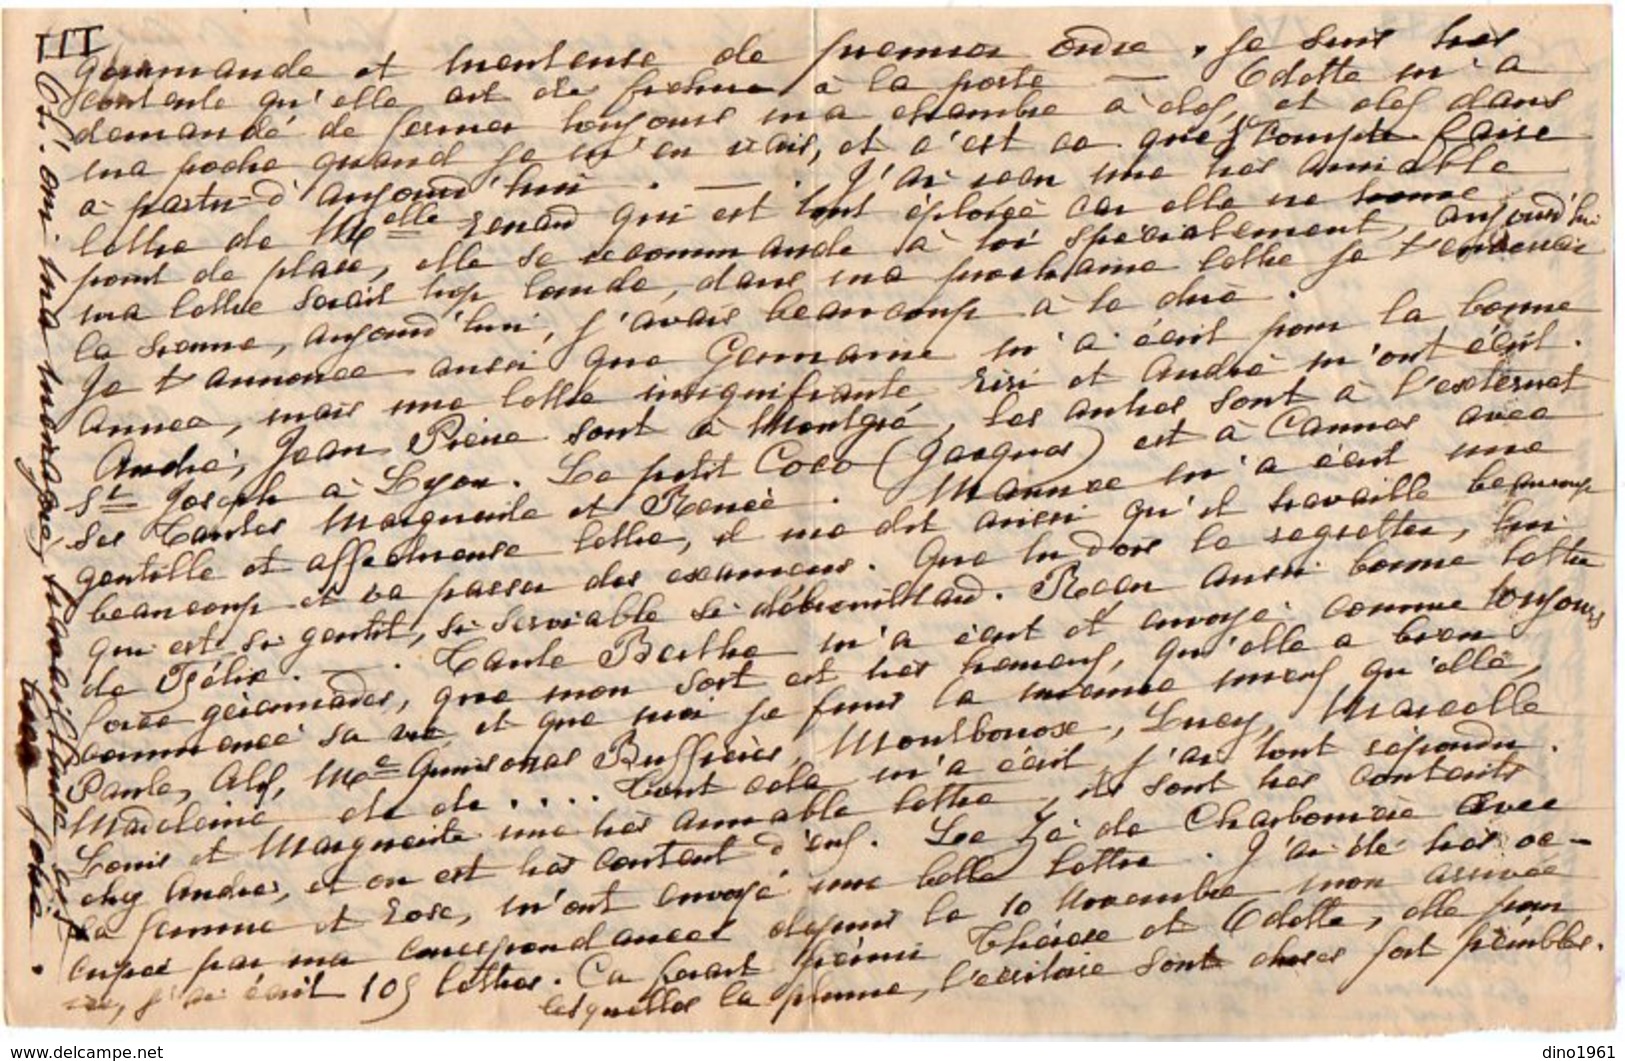 III
gourmande et menteuse de premier ordre, je suis très
contente qu'elle ait été fichue à la porte — Odette m'a
demandé de fermer toujours ma chambre à clef, et clef dans
ma poche quand je m'en vais, et c'est ce que je compte faire
à partir d'aujourd'hui. — . J'ai reçu une très aimable
lettre de Melle Renaud qui est tout éplorée car elle ne trouve
point de place, elle se recommande à toi spécialement, aujourd'hui
ma lettre serait trop lourde, dans ma prochaine lettre je t'enverrai
la sienne, aujourd'hui, j'avais beaucoup à te dire.
Je t'annonce aussi que Germaine m'a écrit pour la bonne
Année, mais une lettre insignifiante, Riri et André m'ont écrit.
André, Jean, Pierre sont à Montgré, les autres sont à l'externat
St Joseph à Lyon. Le petit Coco (Jacques) est à Cannes avec
ses tantes Marguerite et Renée. Maurice m'a écrit une
gentille et affectueuse lettre, il me dit aussi qu'il travaille beaucoup
beaucoup et va passer des examens. Que tu dois le regretter, lui
qui est si gentil, si serviable si débrouillard. Reçu aussi bonne lettre
de Félix. — . Tante Berthe m'a écrit et envoyé comme toujours
force gérémiades, que mon sort est très heureux, qu'elle a bien
commencé sa vie et que moi je finis la mienne mieux qu'elle,
Paule, Alf, Me Buffière, Montbonox, Lucy, Marcelle
Madeleine etc etc . . . . Tout cela m'a écrit, j'ai tout répondu.
Louis et Marguerite une très aimable lettre, ils sont très contents
chez André, et on est très content d'eux. Le de Charbonnière avec
sa femme et Rose, m'ont envoyé une belle lettre. J'ai été très oc-
cupée par ma correspondance depuis le 10 Novembre mon arrivée
ici, j'ai écrit 105 lettres. Ça ferait frémir Thérèse et Odette, elle pour
lesquelles la plume, l'écritoire sont choses fort pénibles.
Ct. oui ma ménagère, travailleuse, est
très jolie.
delcampe.net
dino1961